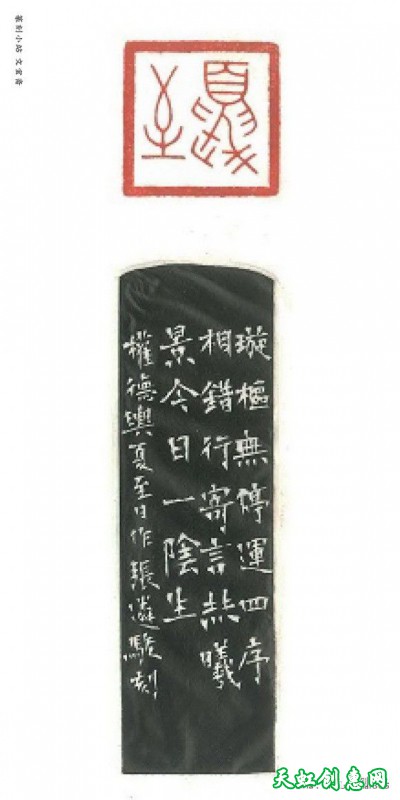 篆刻小站 文宝斋
夏至
璇樞無停運四序
相錯行寄言赫曦
景今日一陰生
權德輿夏至日作張遴駿刻
天虹创意网